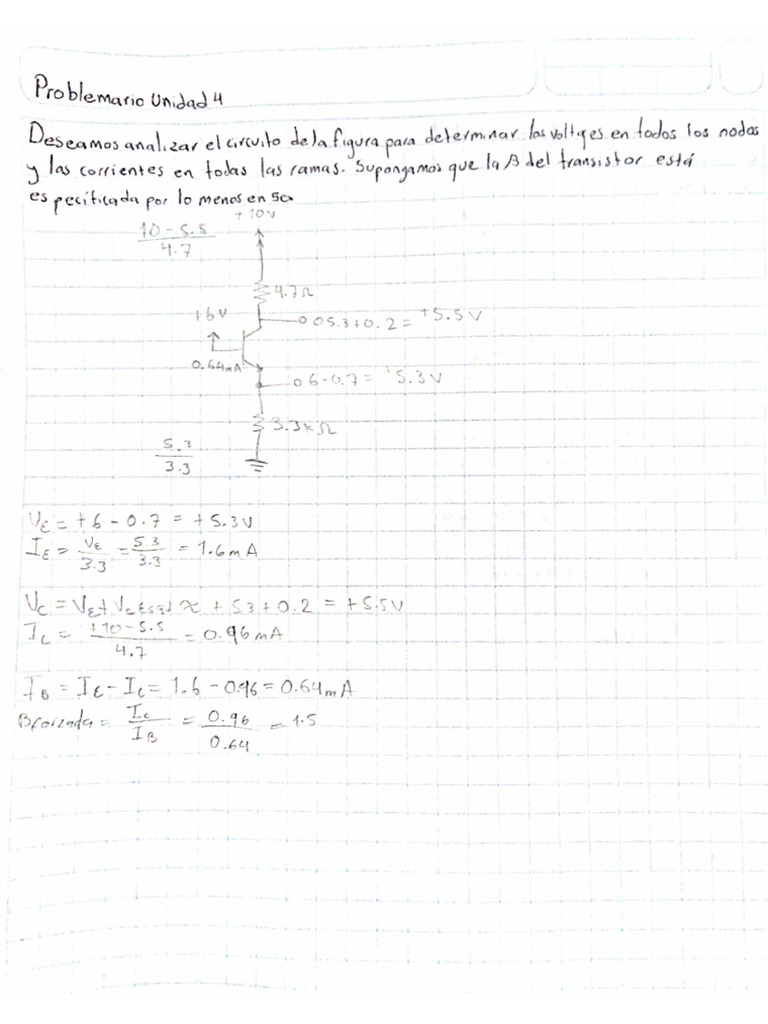 Problemario Unidad 4
Deseamos analizar el circuito de la figura para determinar los voltajes en todos los nodos
y las corrientes en todas las ramas. Supongamos que la β del transistor está
especificada por lo menos en 50.
+10V
10-5.5
4.7
4.7Ω
+6V
05.3+0.2= +5.5V
0.64mA
06-0.7= +5.3V
3.3kΩ
5.3
3.3
VE = +6 - 0.7 = +5.3V
IE = VE/3.3 = 5.3/3.3 = 1.6mA
VC = VE + VCEsat ≈ +5.3+0.2 = +5.5V
IC = +10-5.5/4.7 = 0.96mA
IB = IE - IC = 1.6 - 0.96 = 0.64mA
Bforzada = IC/IB = 0.96/0.64 = 1.5